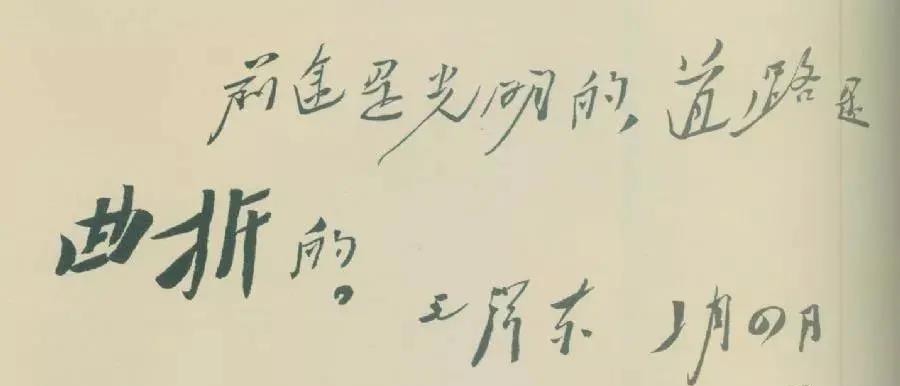 前途是光明的，道路是
曲折的。
毛泽东 月四日